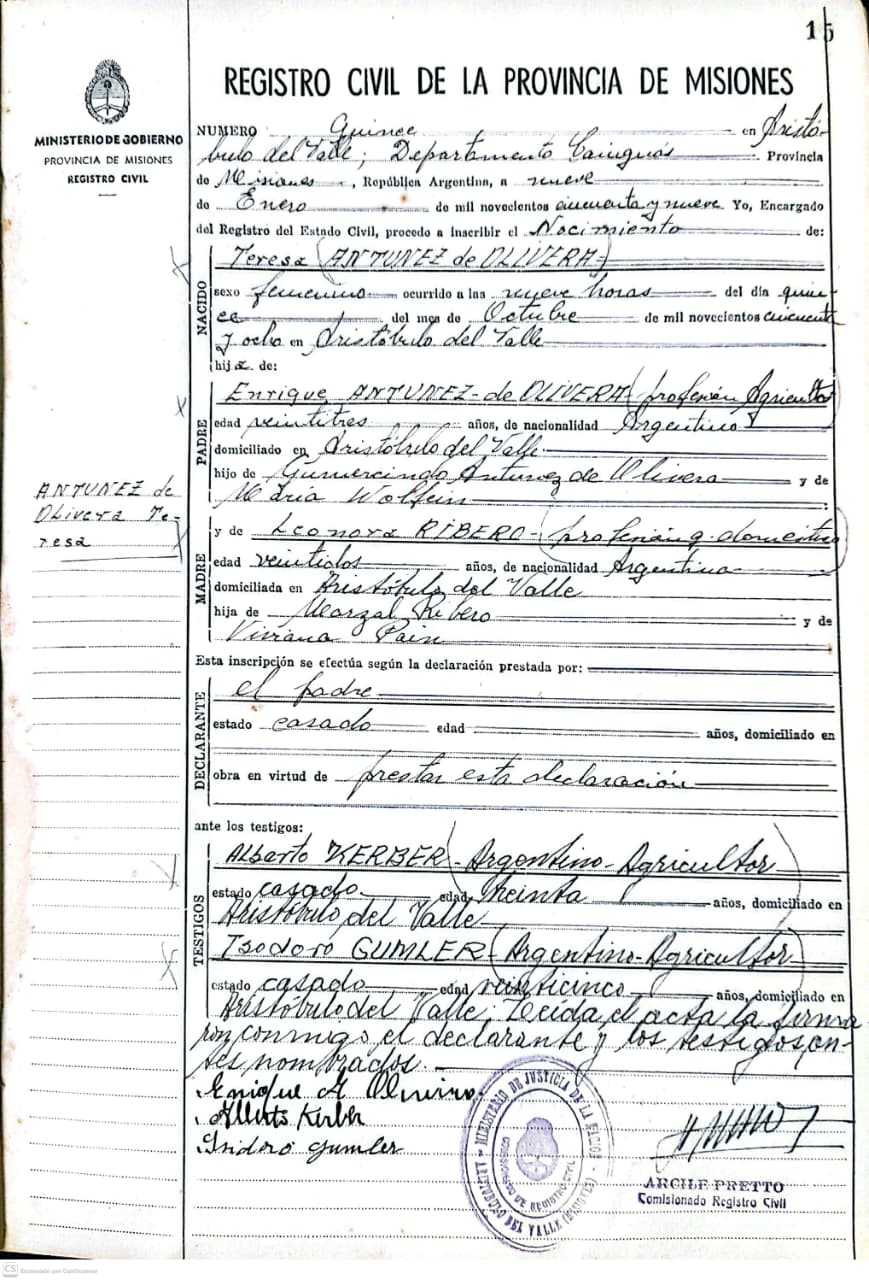 15
REGISTRO CIVIL DE LA PROVINCIA DE MISIONES
MINISTERIO DE GOBIERNO
PROVINCIA DE MISIONES
REGISTRO CIVIL
NUMERO Quince en Aristó-
bulo del Valle; Departamento Cainguás Provincia
de Misiones, República Argentina, a nueve
de Enero de mil novecientos cincuenta y nueve Yo, Encargado
del Registro del Estado Civil, procedo a inscribir el Nacimiento de:
NACIDO
Teresa (ANTUNEZ de OLIVERA-)
sexo femenino ocurrido a las nueve horas del día quin-
ce del mes de Octubre de mil novecientos cincuenta
y ocho en Aristóbulo del Valle
hija de:
PADRE
Enrique ANTUNEZ-de OLIVERA (profesión Agricultor)
edad veintitres años, de nacionalidad Argentino
domiciliado en Aristóbulo del Valle
hijo de Gumercindo Antunez de Olivera y de
Maria Wolfein :
ANTUNEZ de
Olivera Te-
resa
MADRE
y de Leonora RIBERO- (profesión q. domestico)
edad veintidos años, de nacionalidad Argentina
domiciliada en Aristóbulo del Valle
hija de Marzal Ribero y de
Viviana Pain
Esta inscripción se efectúa según la declaración prestada por:
DECLARANTE
el padre
estado casado edad años, domiciliado en
obra en virtud de prestar esta declaración
ante los testigos:
TESTIGOS
Alberto KERBER-(Argentino-Agricultor)
estado casado edad treinta años, domiciliado en
Aristóbulo del Valle
Isodoro GUMLER-(Argentino-Agricultor)
estado casado edad veinticinco años, domiciliado en
Aristóbulo del Valle; Leída el acta la firma-
ron conmigo el declarante y los testigos an-
tes nombrados.
Enrique A Olivera
Alberto Kerber
Isidoro Gumler
MINISTERIO DE JUSTICIA DE LA NACION
ARISTOBULO DEL VALLE (MISIONES)
ARCILE PRETTO
Comisionado Registro Civil
CS Escaneado con CamScanner